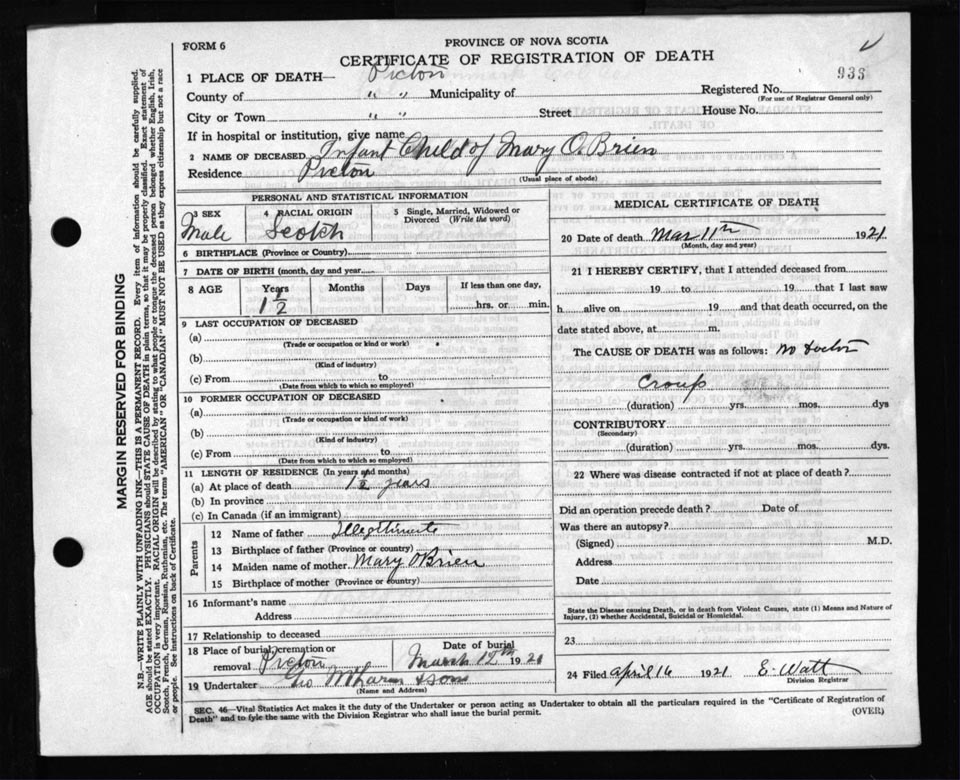 FORM 6
PROVINCE OF NOVA SCOTIA
CERTIFICATE OF REGISTRATION OF DEATH
935
1 PLACE OF DEATH— Pictou
County of " " Municipality of
Registered No.
(For use of Registrar General only)
City or Town " " Street House No.
If in hospital or institution, give name
2 NAME OF DECEASED Infant Child of Mary O'Brien
Residence Pictou
(Usual place of abode)
PERSONAL AND STATISTICAL INFORMATION
3 SEX Male
4 RACIAL ORIGIN Scotch
5 Single, Married, Widowed or Divorced (Write the word)
6 BIRTHPLACE (Province or Country)
7 DATE OF BIRTH (month, day and year)
8 AGE Years Months Days If less than one day,
1 1/2 hrs. or min.
9 LAST OCCUPATION OF DECEASED
(a)
(Trade or occupation or kind or work)
(b)
(Kind of industry)
(c) From to
(Date from which to which so employed)
10 FORMER OCCUPATION OF DECEASED
(a)
(Trade or occupation or kind of work)
(b)
(Kind of industry)
(c) From to
(Date from which to which so employed)
11 LENGTH OF RESIDENCE (In years and months)
(a) At place of death 1 1/2 years
(b) In province
(c) In Canada (if an immigrant)
Parents
12 Name of father Illegitimate
13 Birthplace of father (Province or country)
14 Maiden name of mother Mary O'Brien
15 Birthplace of mother (Province or country)
16 Informant's name
Address
17 Relationship to deceased
18 Place of burial, cremation or removal Pictou
Date of burial March 12th 1921
19 Undertaker Geo & Sons
(Name and Address)
MEDICAL CERTIFICATE OF DEATH
20 Date of death Mar 11th 1921
(Month, day and year)
21 I HEREBY CERTIFY, that I attended deceased from
19 to 19 that I last saw
h alive on 19 and that death occurred, on the
date stated above, at m.
The CAUSE OF DEATH was as follows: no doctor
Croup
(duration) yrs. mos. dys
CONTRIBUTORY
(Secondary)
(duration) yrs. mos. dys.
22 Where was disease contracted if not at place of death?
Did an operation precede death? Date of
Was there an autopsy?
(Signed) M.D.
Address
Date
State the Disease causing Death, or in death from Violent Causes, state (1) Means and Nature of
Injury, (2) whether Accidental, Suicidal or Homicidal.
23
24 Filed April 16 1921 E. Watt
Division Registrar
SEC. 46—Vital Statistics Act makes it the duty of the Undertaker or person acting as Undertaker to obtain all the particulars required in the "Certificate of Registration of
Death" and to fyle the same with the Division Registrar who shall issue the burial permit.
(OVER)
MARGIN RESERVED FOR BINDING
N.B.—WRITE PLAINLY WITH UNFADING INK—THIS IS A PERMANENT RECORD. Every item of information should be carefully supplied.
AGE should be stated EXACTLY. PHYSICIANS should STATE CAUSE OF DEATH in plain terms, so that it may be properly classified. Exact statement of
OCCUPATION is very important. RACIAL ORIGIN will be described by stating to what people or tongue the deceased person belonged whether English, Irish,
Scotch, French, German, Russian, Ruthenian, etc. The terms "AMERICAN" or "CANADIAN" MUST NOT BE USED as they express citizenship but not a race
or people. See instructions on back of Certificate.